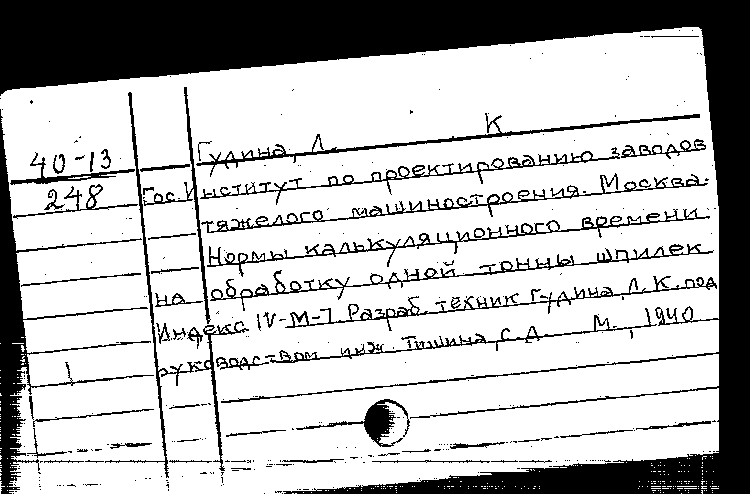 Гудина, Л. К
40-13
248
Гос. Институт по проектированию заводов
тяжелого машиностроения. Москва.
Нормы калькуляционного времени
на обработку одной тонны шпилек
Индекс IV-М-7. Разраб. техник Гудина, Л. К. под
руководством инж. Тишина, С. Д. М., 1940